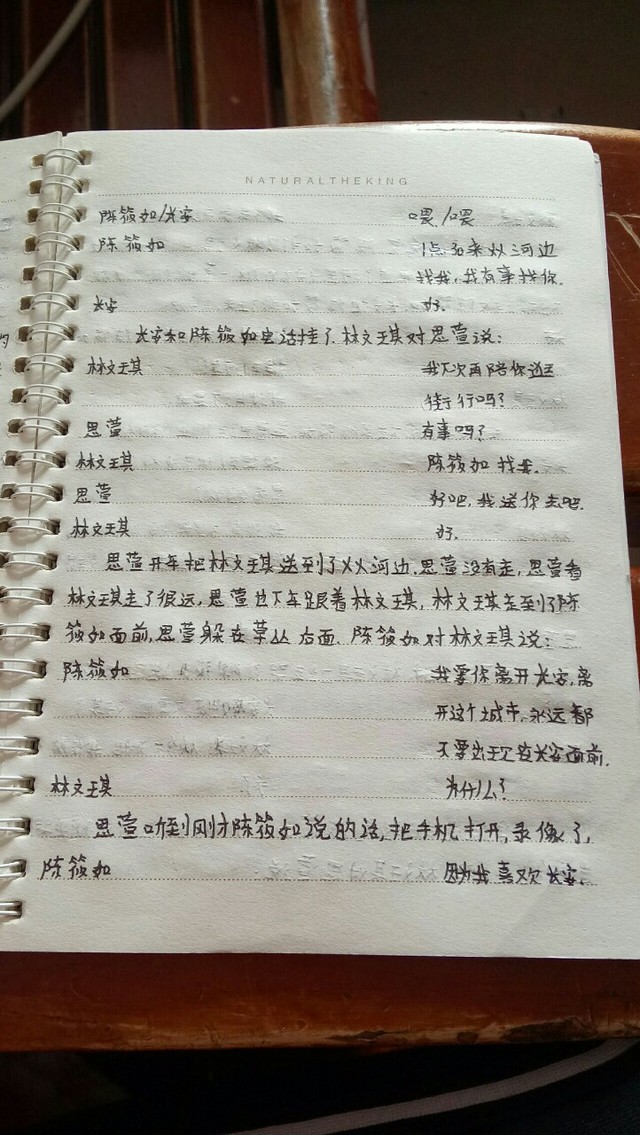 NATURALTHEKING
陈筱如/长安 喂/喂
陈筱如 1点30来火河边
找我,我有事找你.
长安 好.
长安和陈筱如电话挂了.林文琪对思萱说:
林文琪 我下次再陪你逛
街行吗?
思萱 有事吗?
林文琪 陈筱如找我.
思萱 好吧,我送你去吧.
林文琪 好.
思萱开车把林文琪送到了火河边.思萱没有走,思萱看
林文琪走了很远,思萱也下车跟着林文琪,林文琪走到了陈
筱如面前,思萱躲在草丛后面.陈筱如对林文琪说:
陈筱如 我要你离开长安,离
开这个城市,永远都
不要出现在长安面前.
林文琪 为什么?
思萱听到刚才陈筱如说的话,把手机打开,录像了,
陈筱如 因为我喜欢长安.